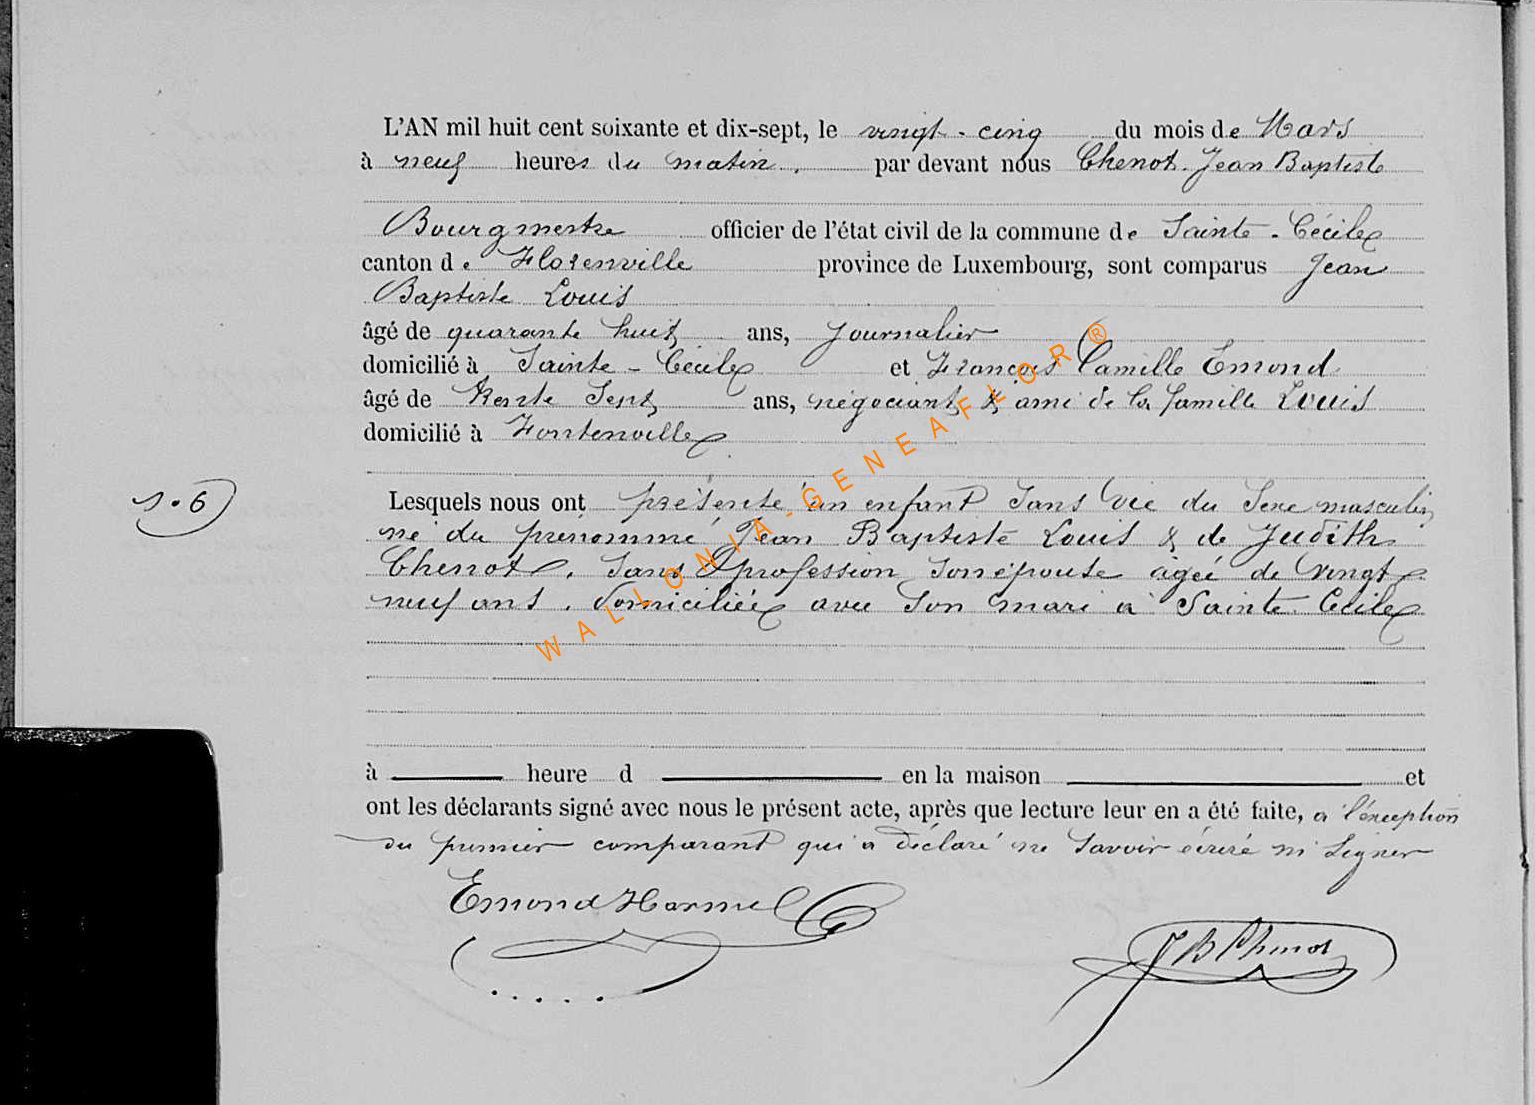 L'AN mil huit cent soixante et dix-sept, le vingt-cinq du mois de Mars
à neuf heures du matin, par devant nous Chenot Jean Baptiste
Bourgmestre officier de l'état civil de la commune de Sainte-Cécile
canton de Florenville province de Luxembourg, sont comparus Jean
Baptiste Louis
âgé de quarante huit ans, journalier
domicilié à Sainte-Cécile et François Camille Emond
âgé de trente Sept ans, négociant & ami de la famille Louis
domicilié à Fontenoille
Lesquels nous ont présenté un enfant Sans Vie du Sexe masculin
né du prénommé Jean Baptiste Louis & de Judith
Chenot, Sans profession Son épouse agée de vingt
neuf ans, domiciliée avec Son mari à Sainte Cécile
N. 6
à heure d en la maison et
ont les déclarants signé avec nous le présent acte, après que lecture leur en a été faite, a l'éxception
du premier comparant qui a déclaré ne Savoir écrire ni Signer
Emond Harmel
JB Chenot
WALLONIA-GENEAFLOR®